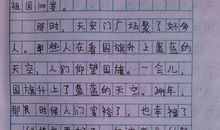 祖国100岁。
那时，天安门广场聚了好多
人。那些人在看国旗升上蓝蓝的
天空，人们仰望国旗。一会儿，
国旗升上了蓝蓝的天空。2049年，
那时候人们富裕了，也幸福了